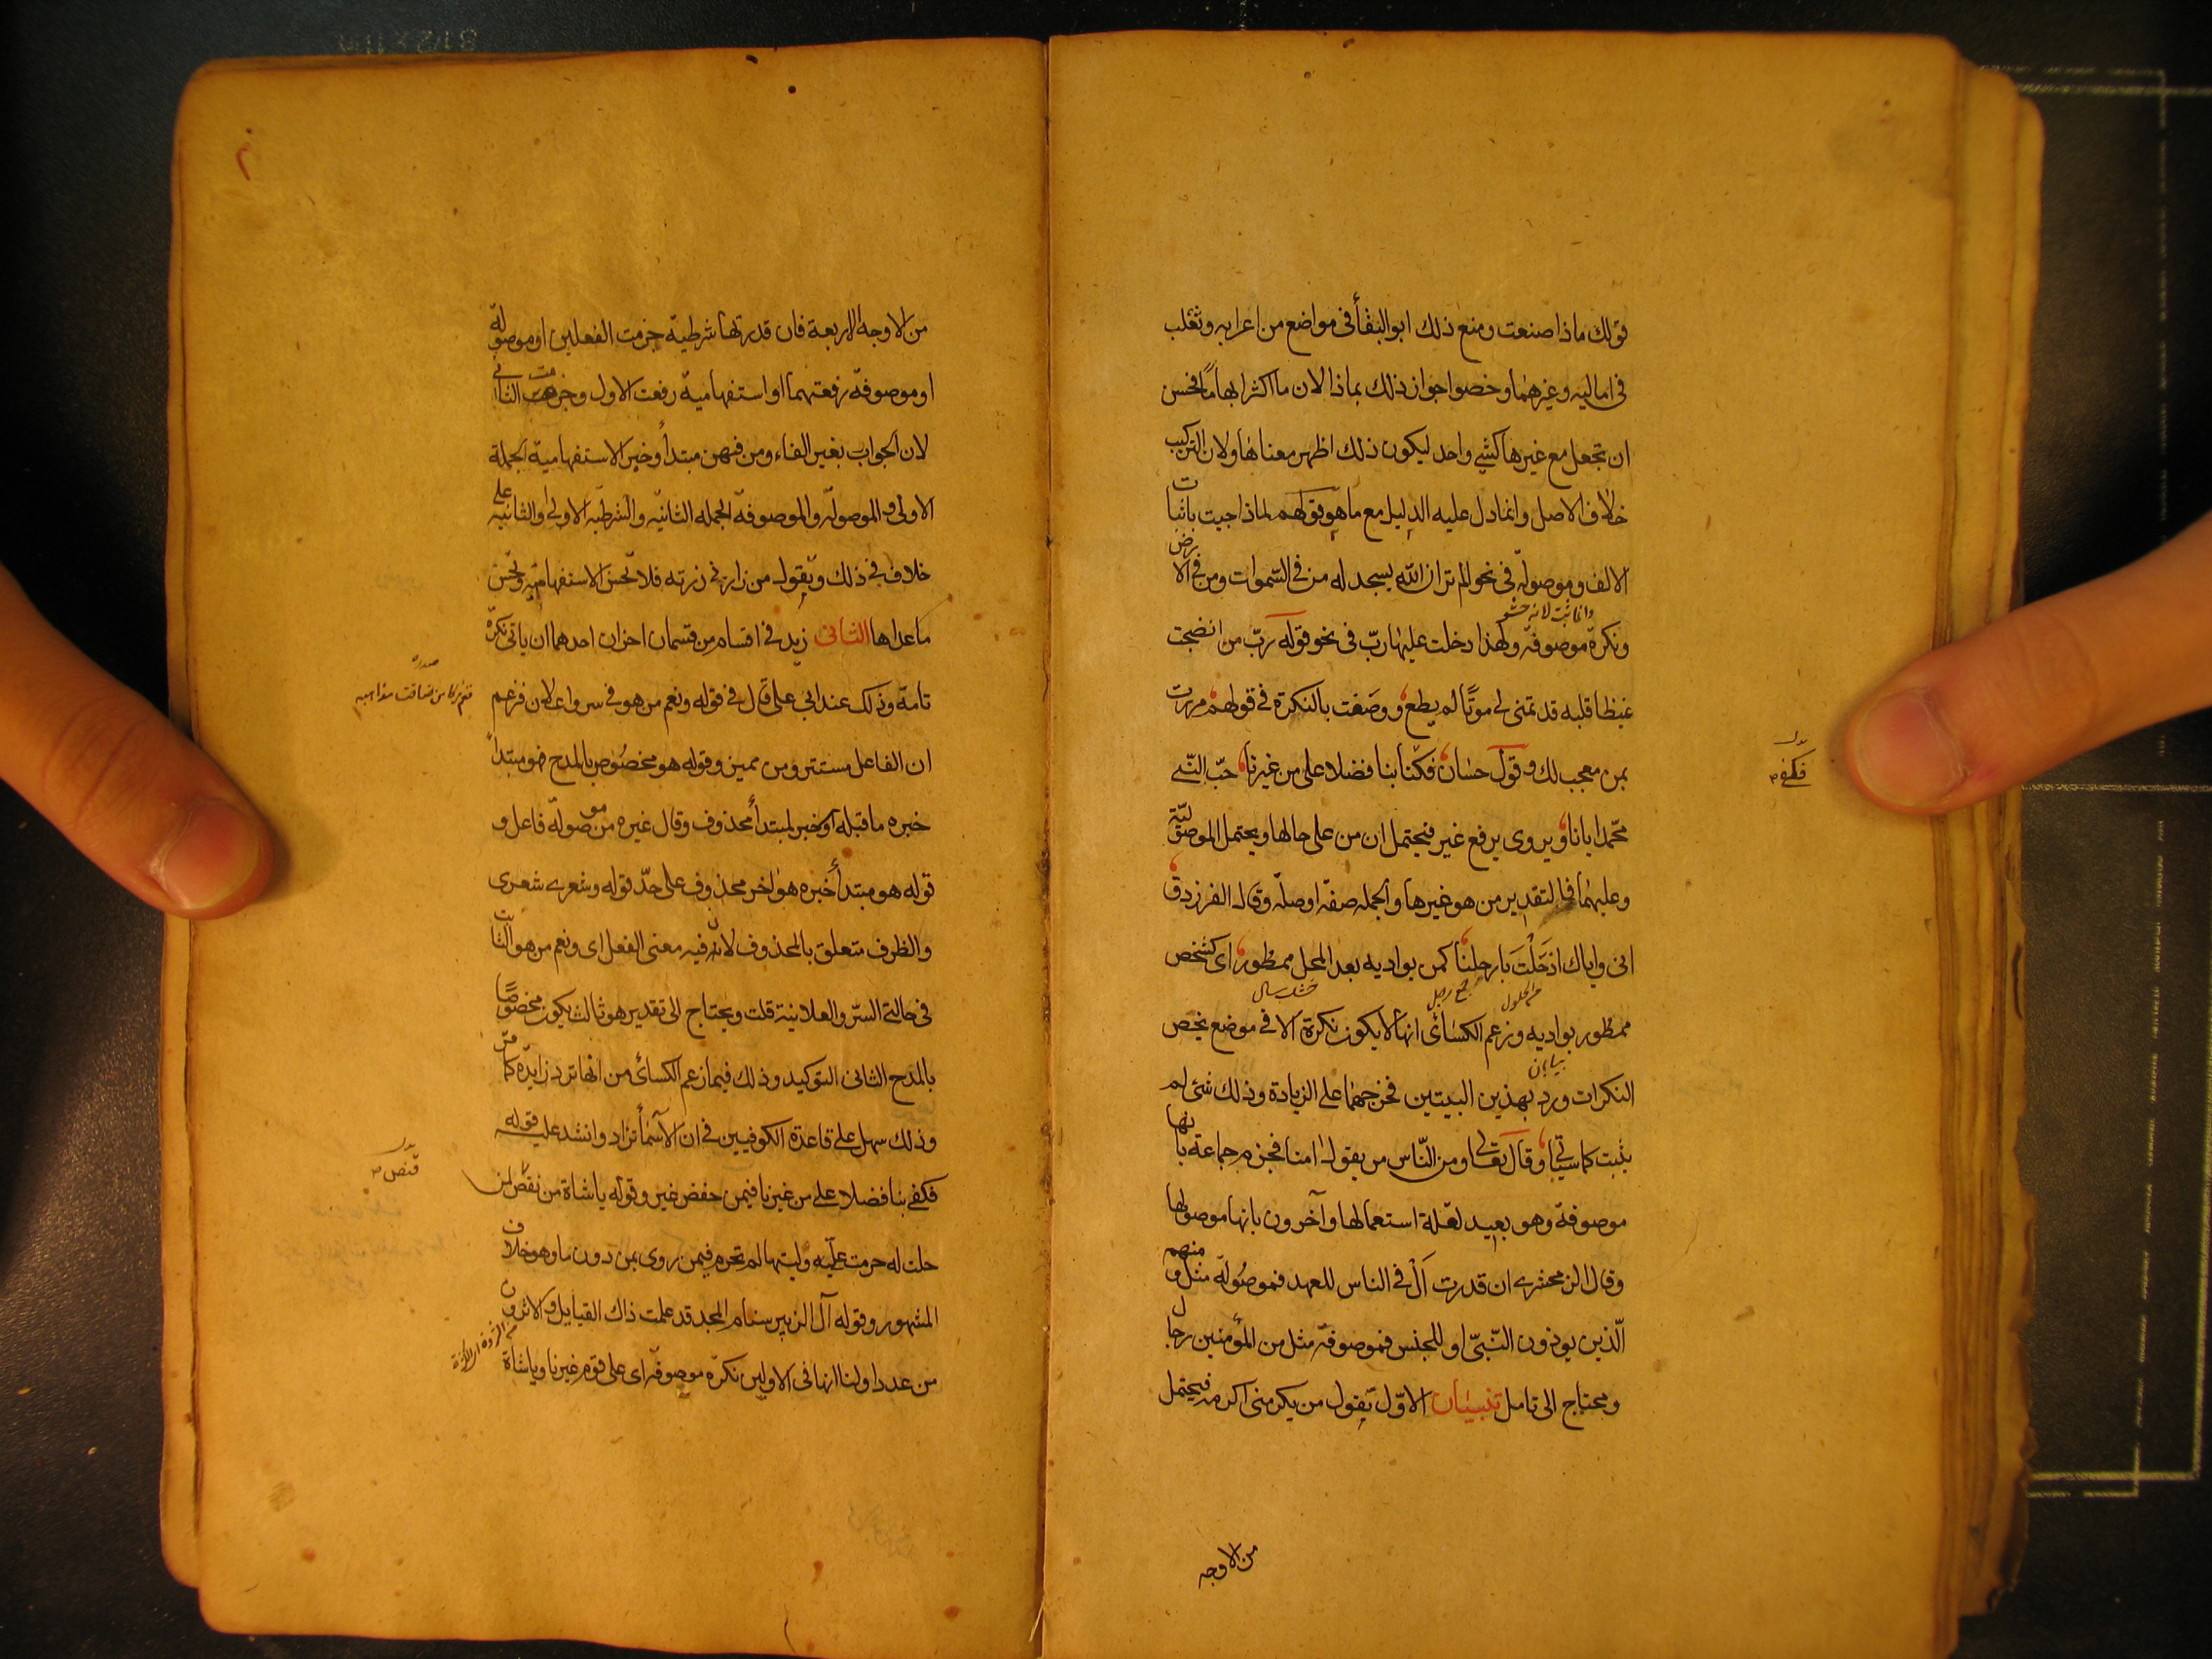 قولك ماذا صنعت ومنع ذلك ابو البقأ فى مواضع من اعرابه وثعلب
فى اماليه وغيرهما وخصوا جواز ذلك بماذا لان ما اكثر ابهامًا فحسن
ان تجعل مع غيرها كشئ واحد ليكون ذلك اظهر معناها ولان التركيب
خلاف الاصل وانما دل عليه الدليل مع ما هو قولهم لماذا جيت باثبات
الالف وموصولة فى نحو الم تر ان الله يسجد له من فى السموات ومن فى الارض
وانما ثبت لانه حشو
ونكرة موصوفة ولهذا دخلت عليها ربّ فى نحو قوله ربّ من انضجت
غيظا قلبه قد تمنى لى موتًا لم يطع ووصفت بالنكرة فى قولهم مررت
بمن معجب لك وقول حسان فكفا بنا فضلا على من غيرنا حبّ النبى
بدل
فكفى
محمد ايانا ويروى برفع غير فيحتمل ان من على حالها ويحتمل الموصولية
وعليهما فالتقدير من هو غيرها والجملة صفة او صلة وقال الفرزدق
انى واياك اذ حَلْتَ بارحلنا كمن بواديه بعد المحل ممطور اى كشخص
من الحلول
جمع رحل
خشك سال
ممطور بواديه وزعم الكسائى انها لا يكون نكرة الا فى موضع يخص
بيابان
النكرات ورد بهذين البيتين فخرجهما على الزيادة وذلك شئ لم
يثبت كما سيأتى وقال تعالى ومن الناس من يقول امنا فجزم جماعة بانها
موصوفة وهو بعيد لقلة استعمالها وآخرون بانها موصولها
وقال الزمخشرى ان قدرت اَلْ فى الناس للعهد فموصولة مثل ومنهم
الّذين يوذون النّبىّ او للجنس فموصوفة مثل من المؤمنين رجال
ويحتاج الى تامل تنبيهان الاوّل يقول من يكرمنى اكرمه فيحتمل
من الاوجه
من الاوجه الاربعة فان قدرتها شرطية جزمت الفعلين او موصولة
او موصوفة رفعتهما او استفهامية رفعت الاول وجزمت الثانى
لان الجواب بغير الفاء ومن فيهن مبتدأ وخبر الاستفهامية الجملة
الاولى والموصولة والموصوفة الجملة الثانية والشرطية الاولى او الثانية على
خلاف فى ذلك ويقول من زارنى زرته فلا تحسن الاستفهامية وتحسن
ما عداها الثانى زيد فى اقسام من قسمان اخران احدهما ان ياتى نكرة
تامة وذلك عند ابى على قال فى قوله ونعم من هو فى سر واعلان فزعم
صدره
فنعم مزكا من ضاقت مذاهبه
ان الفاعل مستتر ومن مميز وقوله هو مخصوص بالمدح فهو مبتدأ
خبره ما قبله او خبر لمبتدأ محذوف وقال غيره من موصولة فاعل و
قوله هو مبتدأ خبره هو اخر محذوف على حدّ قوله وشعرى شعرى
والظرف متعلق بالمحذوف لان فيه معنى الفعل اى ونعم من هو الثابت
فى حالتى السرّ والعلانية قلت ويحتاج الى تقدير هو ثالث يكون مخصوصًا
بالمدح الثانى التوكيد وذلك فيما زعم الكسائى من انها ترد زايدة كما مرّ
وذلك سهل على قاعدة الكوفيين فى ان الاسمأ تزاد وانشد عليه قوله
فكفى بنا فضلا على من غيرنا فيمن خفض غير وقوله ياشاة من نقص لمن
بدل
قنص
حلت له حرمت عليه وليتها لم تحرم فيمن روى بمن دون ما وهو خلاف
المشهور وقوله آل الزبير سنام المجد قد علمت ذاك القبايل والاثرون
من عددا ولنا انها فى الاولين نكرة موصوفة اى على قوم غيرنا وياشاة